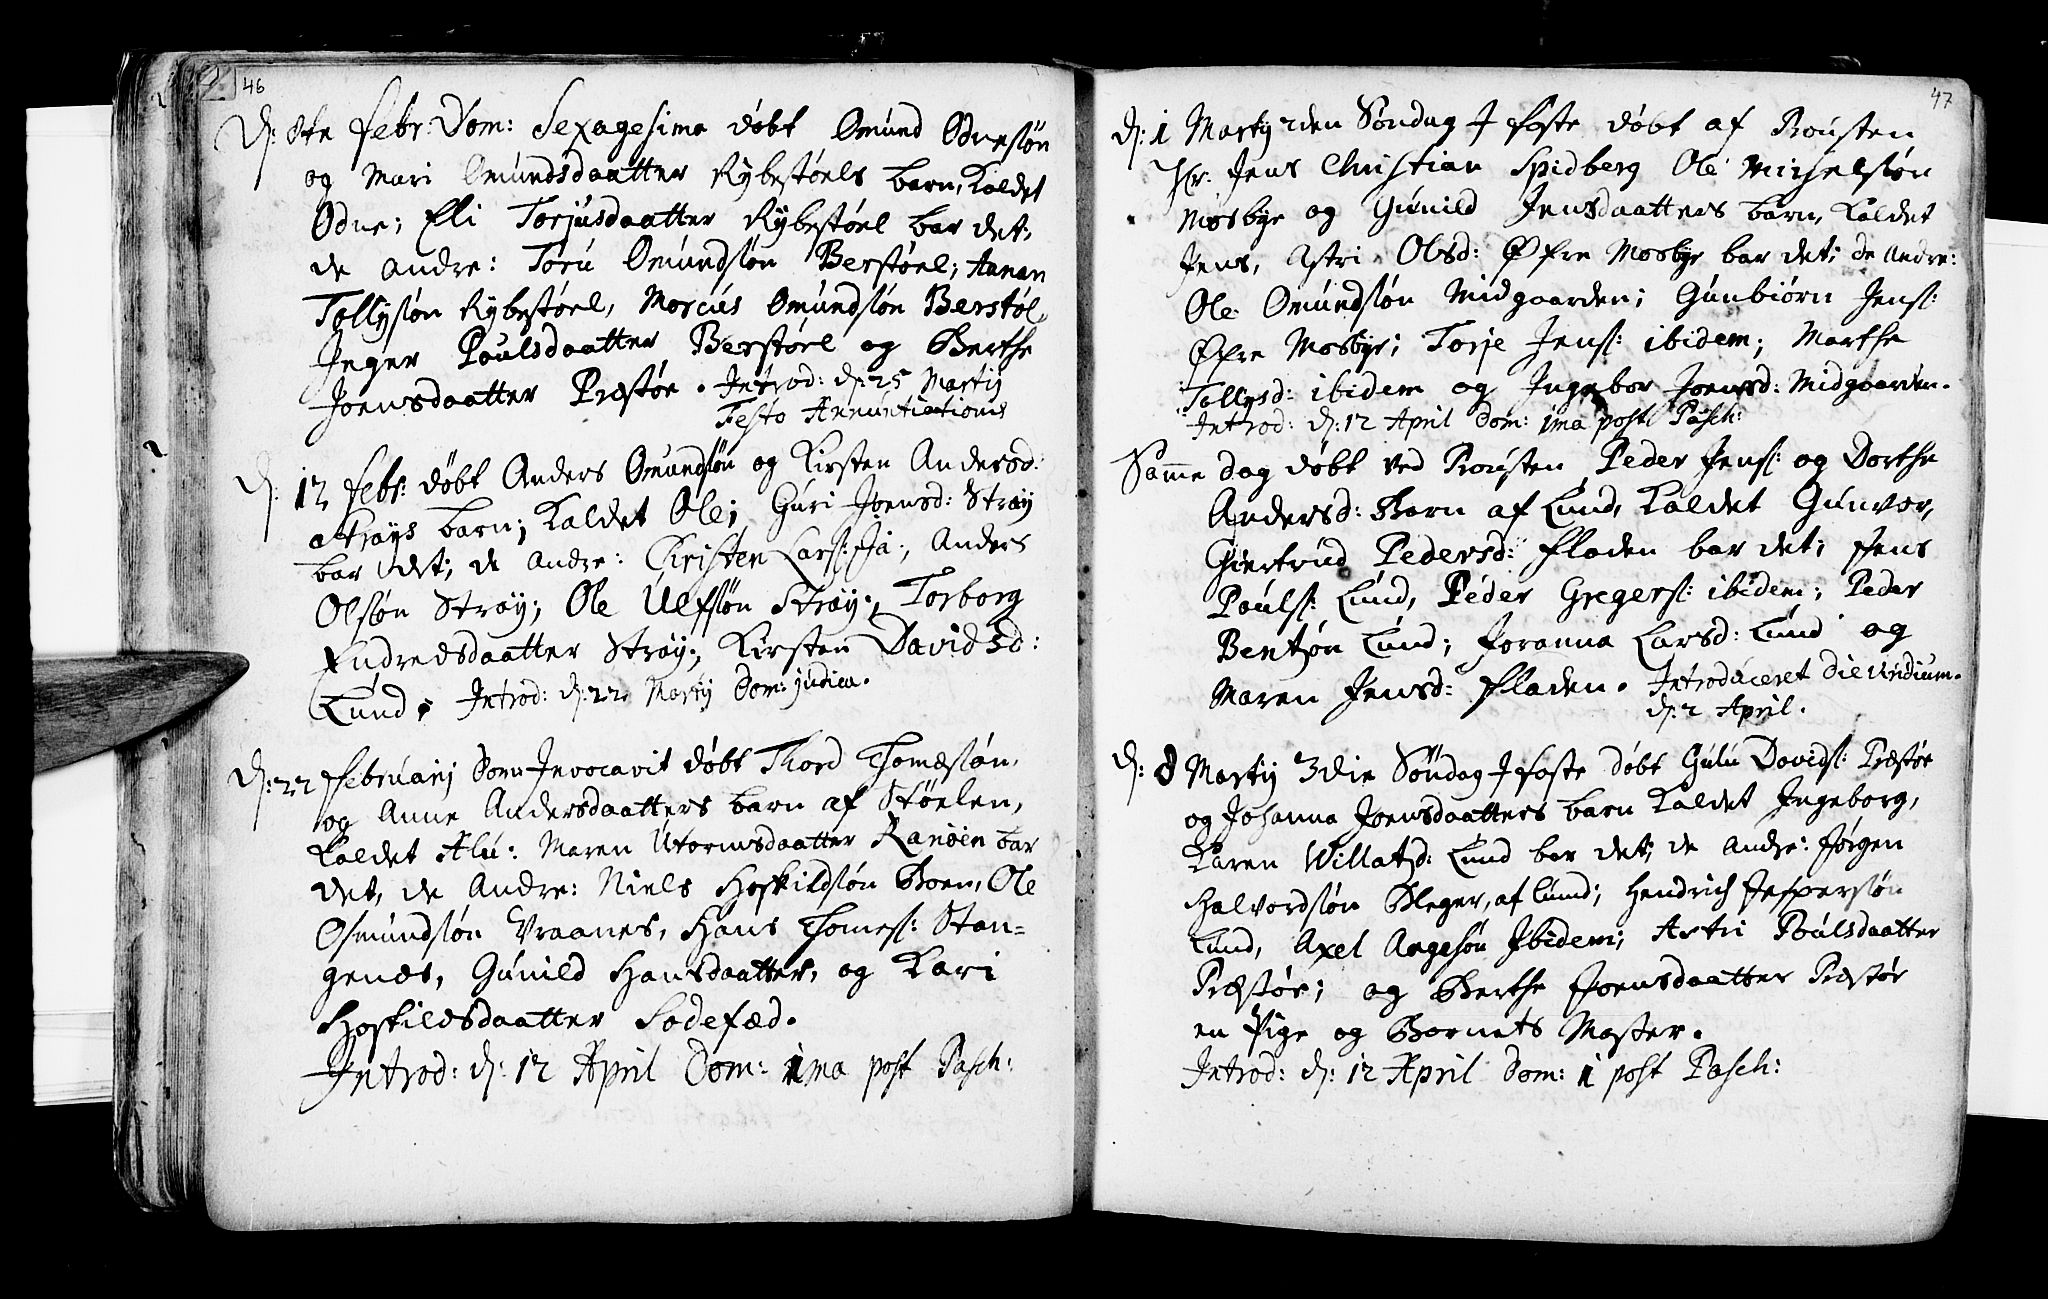 46
D: 8te Febr: Dom: Sexagesima døbt Omund Odnesøn
og Mari Omundsdaatter Rybestøels barn, kaldet
Odne; Eli Torjusdaatter Rybestøel bar det;
de andre: Toru Omundsøn Berstøel; Aanan
Tollysøn Rybestøel, Marcus Omundsøn Berstøl,
Inger Poulsdaatter Berstøel og Berthe
Joensdaatter Præstøe. Introd: d: 25 Martij
Festo Annuntiationis
D: 12 Febr: døbt Anders Omundsøn og Kirsten Andersd:
a Strøys barn; kaldet Ole; Guri Joensd: Strøy
bar det; de andre: Christen Lars: , Anders
Olsøn Strøy; Ole Ulfsøn Strøy; Torborg
Endredsdaatter Strøy; Kirsten Davidsd:
Lund. Introd: d: 22 Martij Dom: judica.
D: 22 Februarij Dom: Invocavit døbt Thord Thomæsøn,
og Anne Andersdaatters barn af Støelen,
kaldet Alu: Maren Utormsdaatter Ranøen bar
det, de andre: Niels Hoskildsøn Boen, Ole
Osmundsøn Vraanes, Hans Thomes: Stan=
genæs, Gunild Hansdaatter, og Kari
Hoskildsdaatter Sodefæd.
Introd: d: 12 April Dom: 1ma post Pasch:
47
D: 1 Martij 2den Søndag J Faste døbt af Prousten
Hr. Jens Christian Spidberg Ole Michelsøn
Mosbye og Gunild Jensdaatters barn, kaldet
Jens, Astri Olsd: Øfre Mosbye bar det; de andre:
Ole Omundsøn Midgaarden; Gunbiørn Jens:
Øfre Mosbye; Torje Jens: ibidem; Marthe
Tollysd: ibidem og Ingebor Joensd: Midgaarden.
Introd: d: 12 April Dom: 1ma post Pasch:
Samme dag døbt ved Prousten Peder Jens: og Dorthe
Andersd: Barn af Lund, kaldet Gunvor,
Giertrud Pedersd: Fladen bar det; Jens
Pouls: Lund, Peder Gregers: ibidem; Peder
Bentsøn Lund; Joranna Larsd: Lund og
Maren Jensd: Fladen. Introduceret die viridium.
d: 2 April.
D: 8 Martij 3die Søndag J Faste døbt Gulu Davids: Præstøe
og Johanna Joensdaatters barn kaldet Ingeborg,
Karen Willatsd: Lund bar det; de andre: Jørgen
Halvordsøn Bleger, af Lund; Hendrich Jespersøn
Lund, Axel Aagesøn Ibidem; Astri Poulsdaatter
Præstøe; og Berthe Joensdaatter Præstøe
en Pige og Barnets Moster.
Introd: d: 12 April Dom: 1 post Pasch: